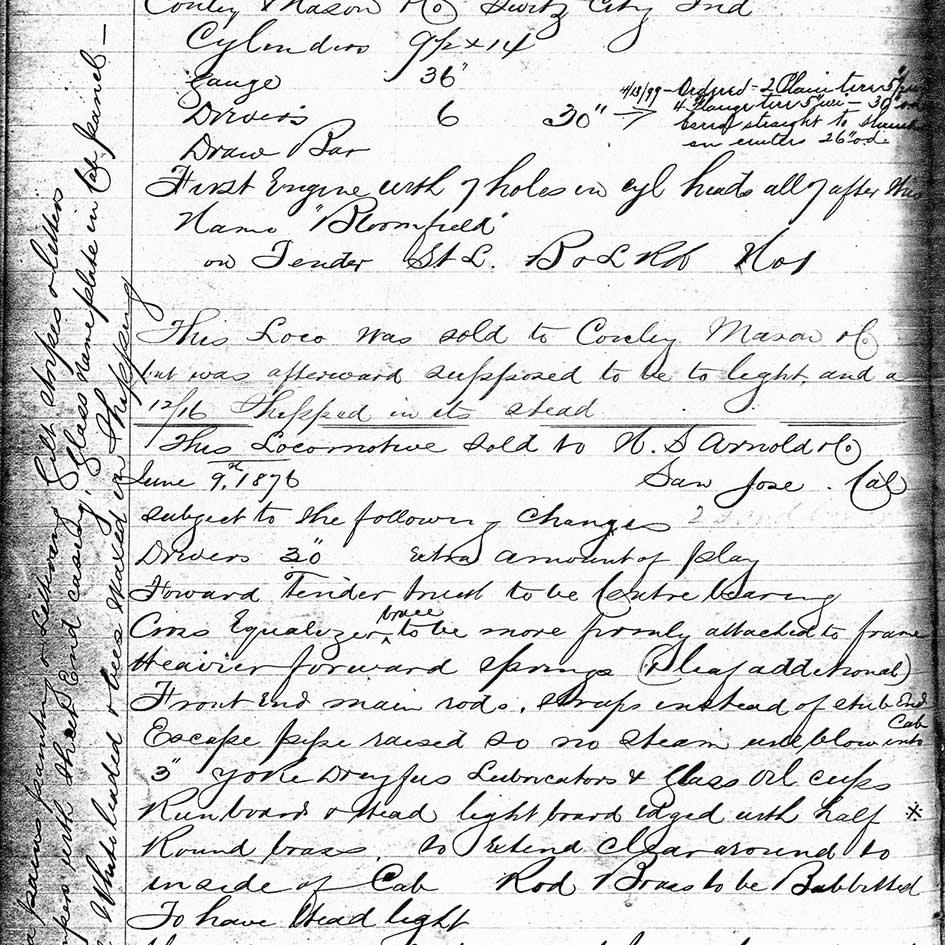 Conley & Mason & Co Switz City Ind
Cylinders 9½ x 14
Gauge 36"
Drivers 6 30"
4/13/99 - Ordered - 2 Plain tires 5"
4 Flange tires 5" - 30" od
straight to
on centers 26" od.
Draw Bar
First Engine with 7 holes in cyl heads all 7 after this
Name "Bloomfield"
on Tender St L. B & L RR No 1
This Loco was sold to Conley Mason & Co
but was afterward supposed to be to light, and a
12/16 Shipped in its stead
This Locomotive sold to N. S Arnold & Co
June 9th, 1876 San Jose. Cal
subject to the following changes
Drivers 30" Extra amount of play
Foward Tender truck to be Centre bearing
Cross Equalizer brace to be more firmly attached to frame
Heavier forward springs (1 leaf additional)
Front End main rods, straps instead of stub End
Escape pipe raised so no steam will blow into Cab
3" Yoke Dreyfus Lubricators & Glass Oil cups
Runboard & Head light board Edged with half *
Round brass, to Extend clear around to
inside of Cab Rod Brass to be Babbitted
To have Head light
painting & lettering Gilt stripes & letters
with sheet End casing, Glass name plate in Cab panel -
White leaded & bees waxed in Shipping